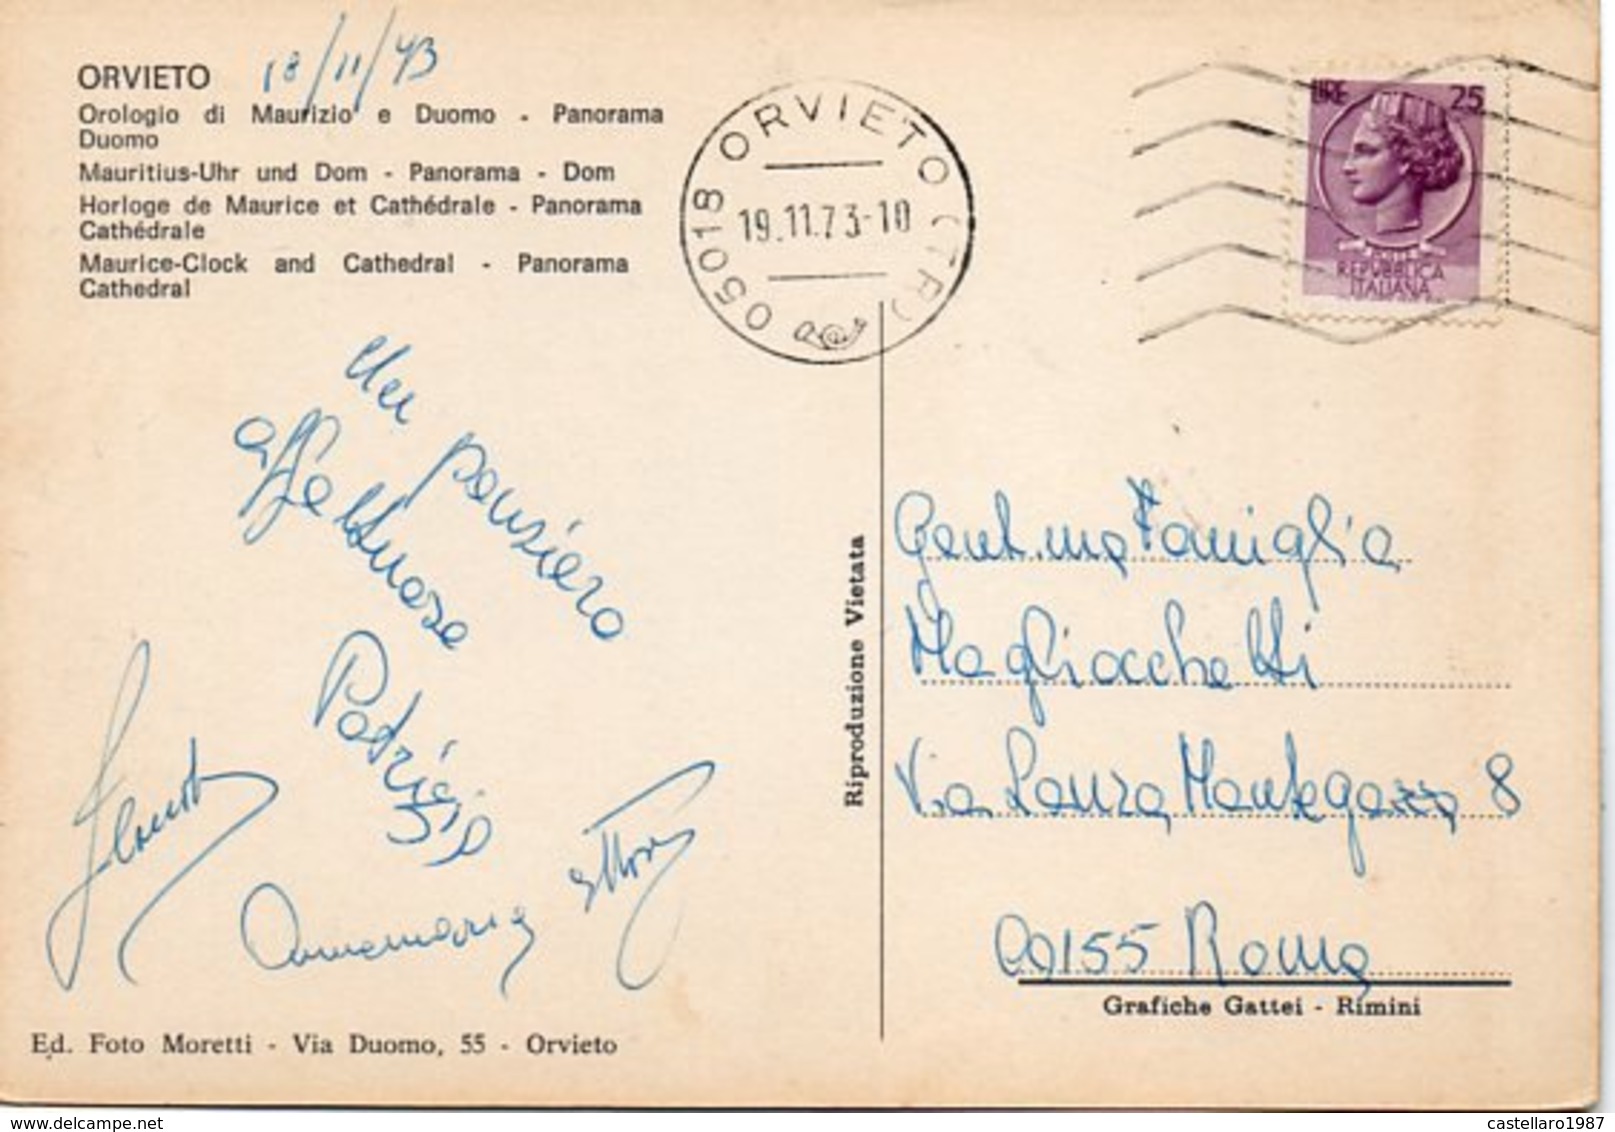 ORVIETO 18/11/73
Orologio di Maurizio e Duomo - Panorama
Duomo
Mauritius-Uhr und Dom - Panorama - Dom
Horloge de Maurice et Cathédrale - Panorama
Cathédrale
Maurice-Clock and Cathedral - Panorama
Cathedral
05018 ORVIETO (TR)
19.11.73-10
LIRE 25
REPVBBLICA
ITALIANA
Un pensiero
affettuoso
Patrizia
Annamaria
Ettore
Riproduzione Vietata
Gent.ma Famiglia
Magliocchetti
Via Laura Mantegazza 8
00155 Roma
Grafiche Gattei - Rimini
Ed. Foto Moretti - Via Duomo, 55 - Orvieto
castellaro1987